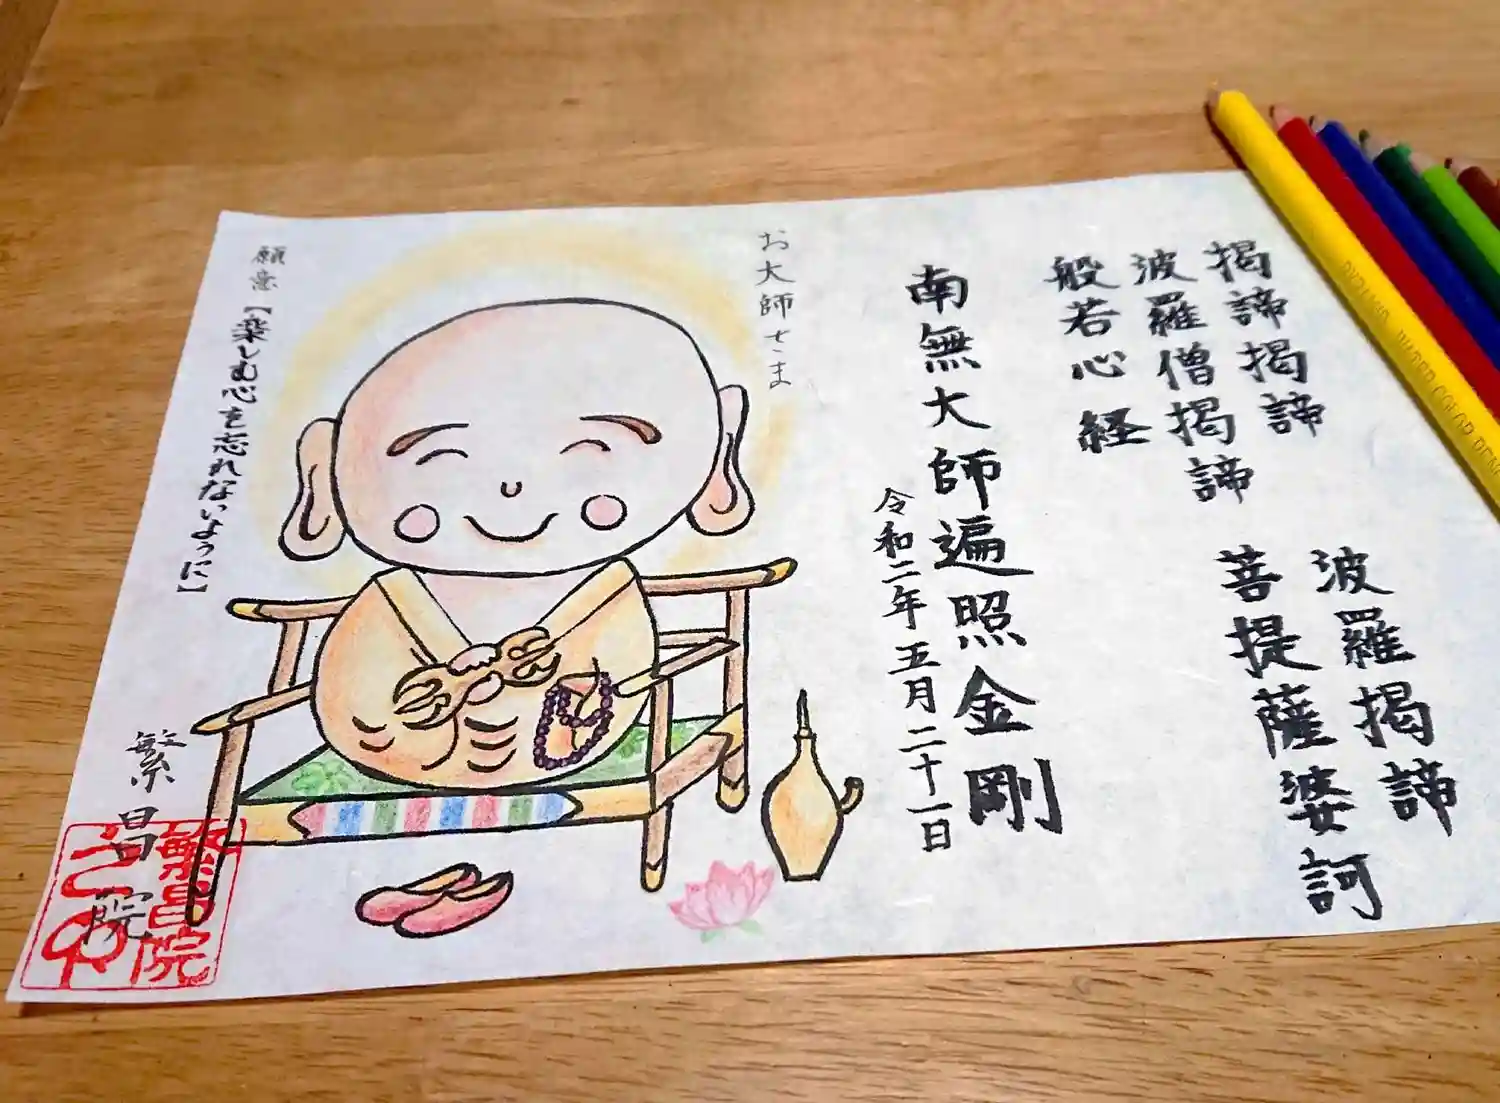 揭諦揭諦
波羅揭諦
波羅僧揭諦
菩提薩婆訶
般若心経
南無大師遍照金剛
令和二年五月二十一日
お大師さま
願意【楽しむ心を忘れないように】
繁昌院
繁昌院